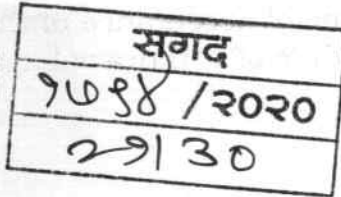 सगद
१७९४/२०२०
२१|३०